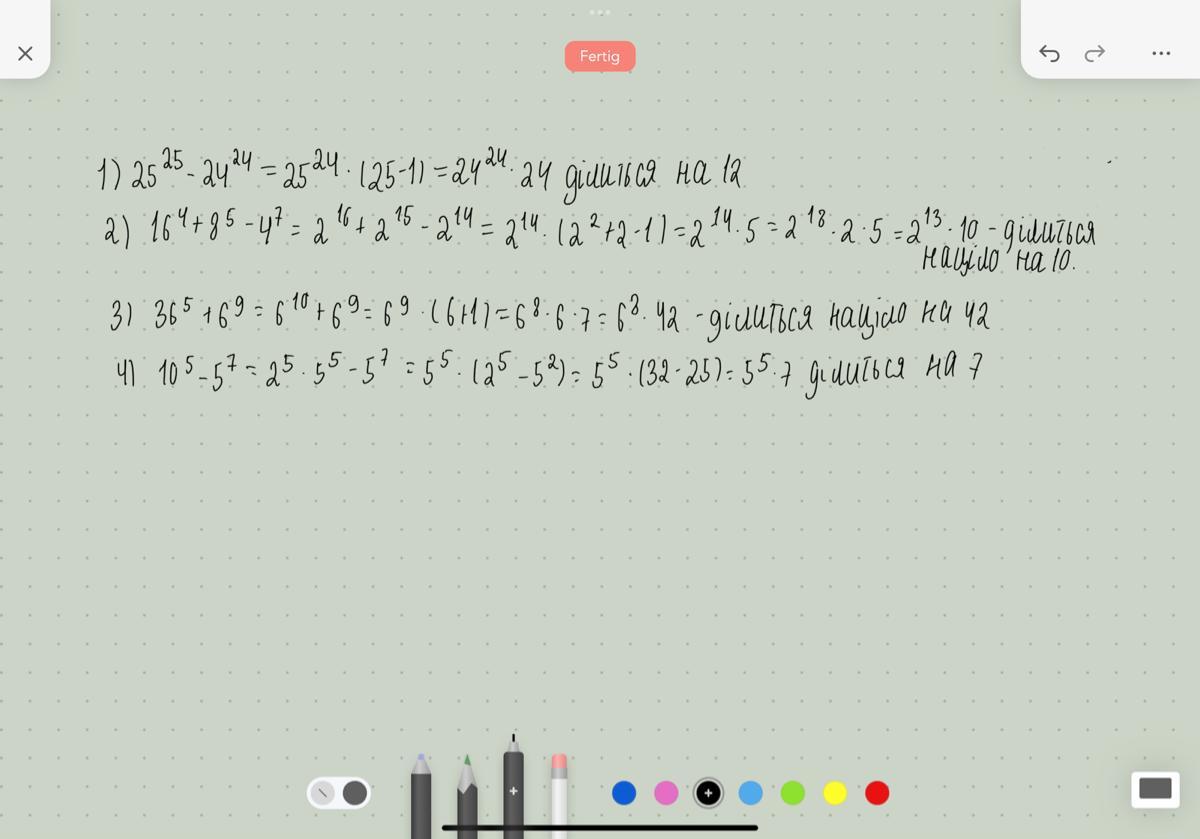 Fertig
1) 25^25 - 24^24 = 25^24 · (25-1) = 24^24 · 24 ділиться на 12
2) 16^4 + 8^5 - 4^7 = 2^16 + 2^15 - 2^14 = 2^14 · (2^2+2-1) = 2^14 · 5 = 2^18 · 2 · 5 = 2^13 · 10 - ділиться
націло на 10.
3) 36^5 + 6^9 = 6^10 + 6^9 = 6^9 · (6+1) = 6^8 · 6 · 7 = 6^8 · 42 - ділиться націло на 42
4) 10^5 - 5^7 = 2^5 · 5^5 - 5^7 = 5^5 · (2^5 - 5^2) = 5^5 · (32-25) = 5^5 · 7 ділиться на 7